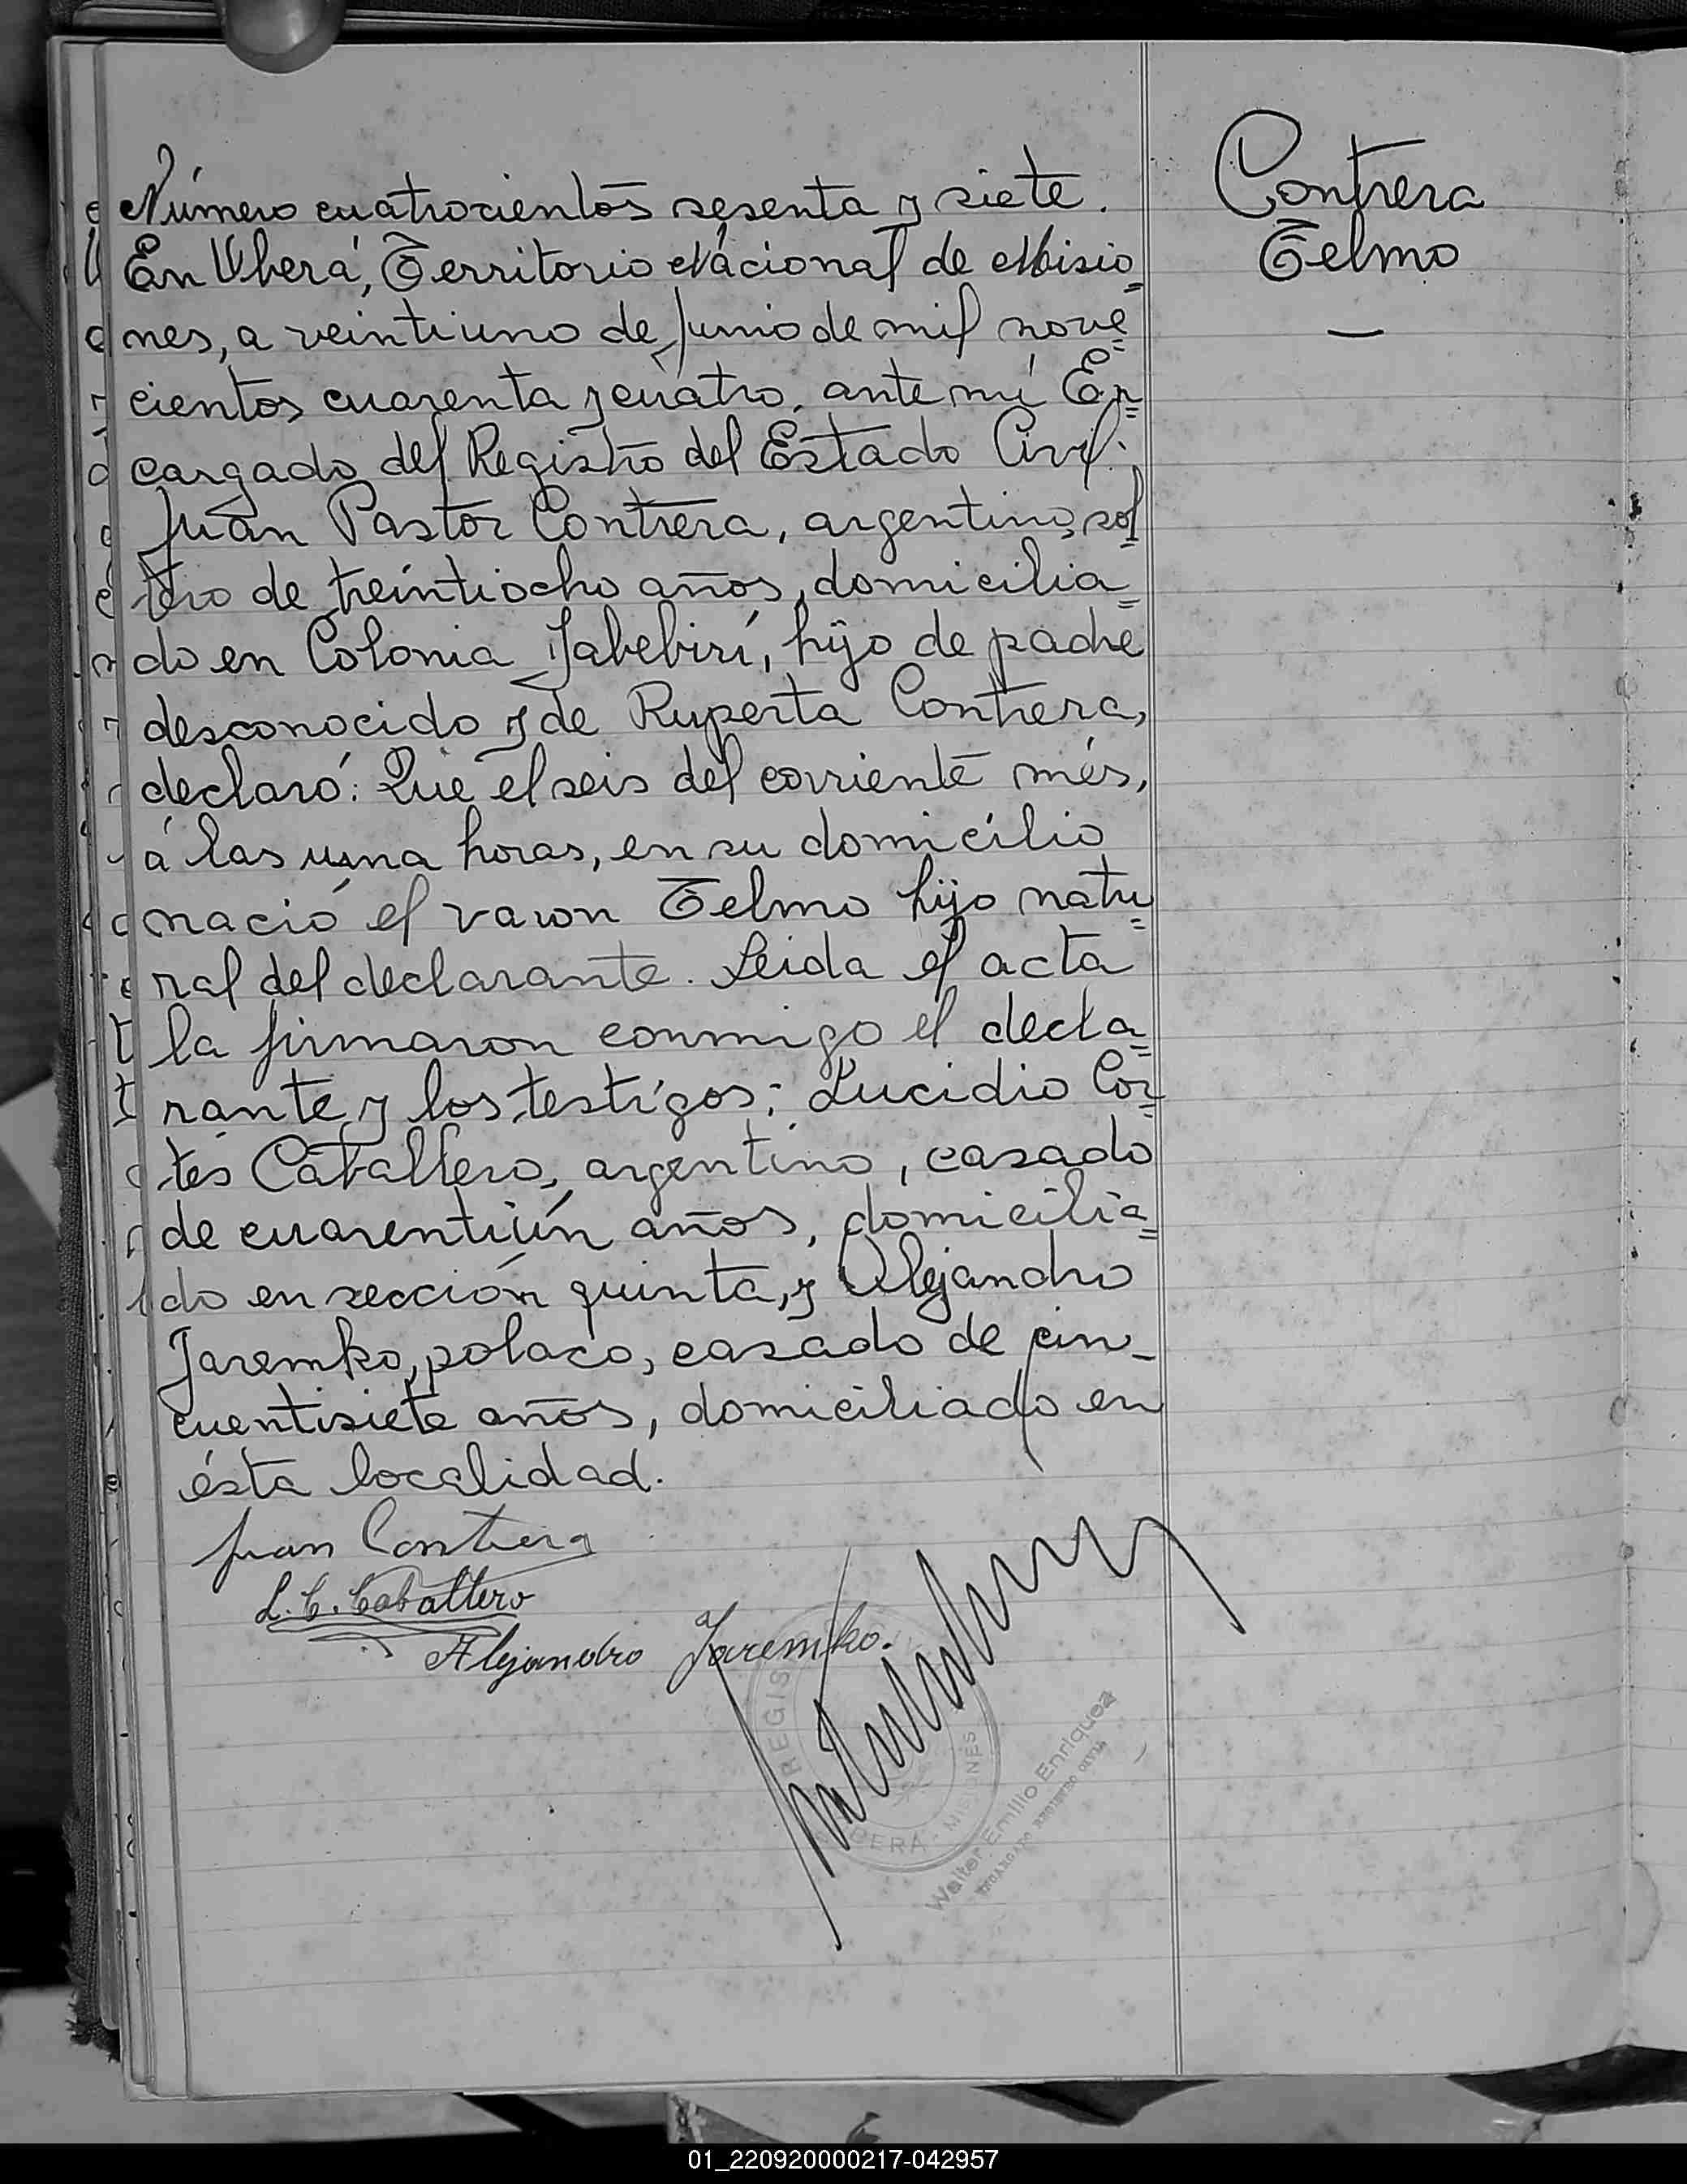 Contrera
Telmo
Número cuatrocientos sesenta y siete.
En Vberá, Territorio Nácional de Misio=
nes, a veintiuno de Junio de mil nove=
cientos cuarenta y cuatro, ante mí En=
cargado del Registro del Estado Civil:
Juan Pastor Contrera, argentino, sol=
tero de treintiocho años, domicilia=
do en Colonia Yabebirí, hijo de padre
desconocido y de Ruperta Contrera,
declaró: Que el seis del corriente més,
á las una horas, en su domicílio
nació el varon Telmo hijo natu=
ral del declarante. Leida el acta
la firmaron conmigo el decla=
rante y los testígos: Lucidio Cor=
tés Caballero, argentino, casado
de cuarentiún años, domicilia=
do en sección quinta, y Alejandro
Jaremko, polaco, casado de cin-
cuentisiete años, domiciliado en
ésta localidad.
Juan Contrera
L. C. Caballero
Alejandro Jaremko.
REGIS
BERA - MISIONES
Walter Emilio Enriquez
ENCARGADO REGISTRO CIVIL
01_220920000217-042957